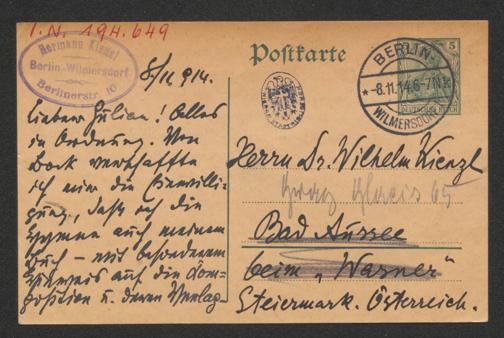 I.N. 194.649
Hermann Kienzl
Berlin-Wilmersdorf
Berlinerstr. 10
Postkarte
BERLIN-
* -8.11.14.6-7N.
WILMERSDORF
5
DEUTSCHES REICH
8/11 914.
Lieber Julian! Alles
in Ordnung. Von
Bock verschaffte
ich mir die Einwilli-
gung, daß ich die
Hymne auch meinem
Buch – mit besonderem
Hinweis auf die Kom-
position u. deren Verlag
Herrn Dr. Wilhelm Kienzl
Graz Glacis 65
Bad Aussee
beim „Wasner"
Steiermark. Österreich.